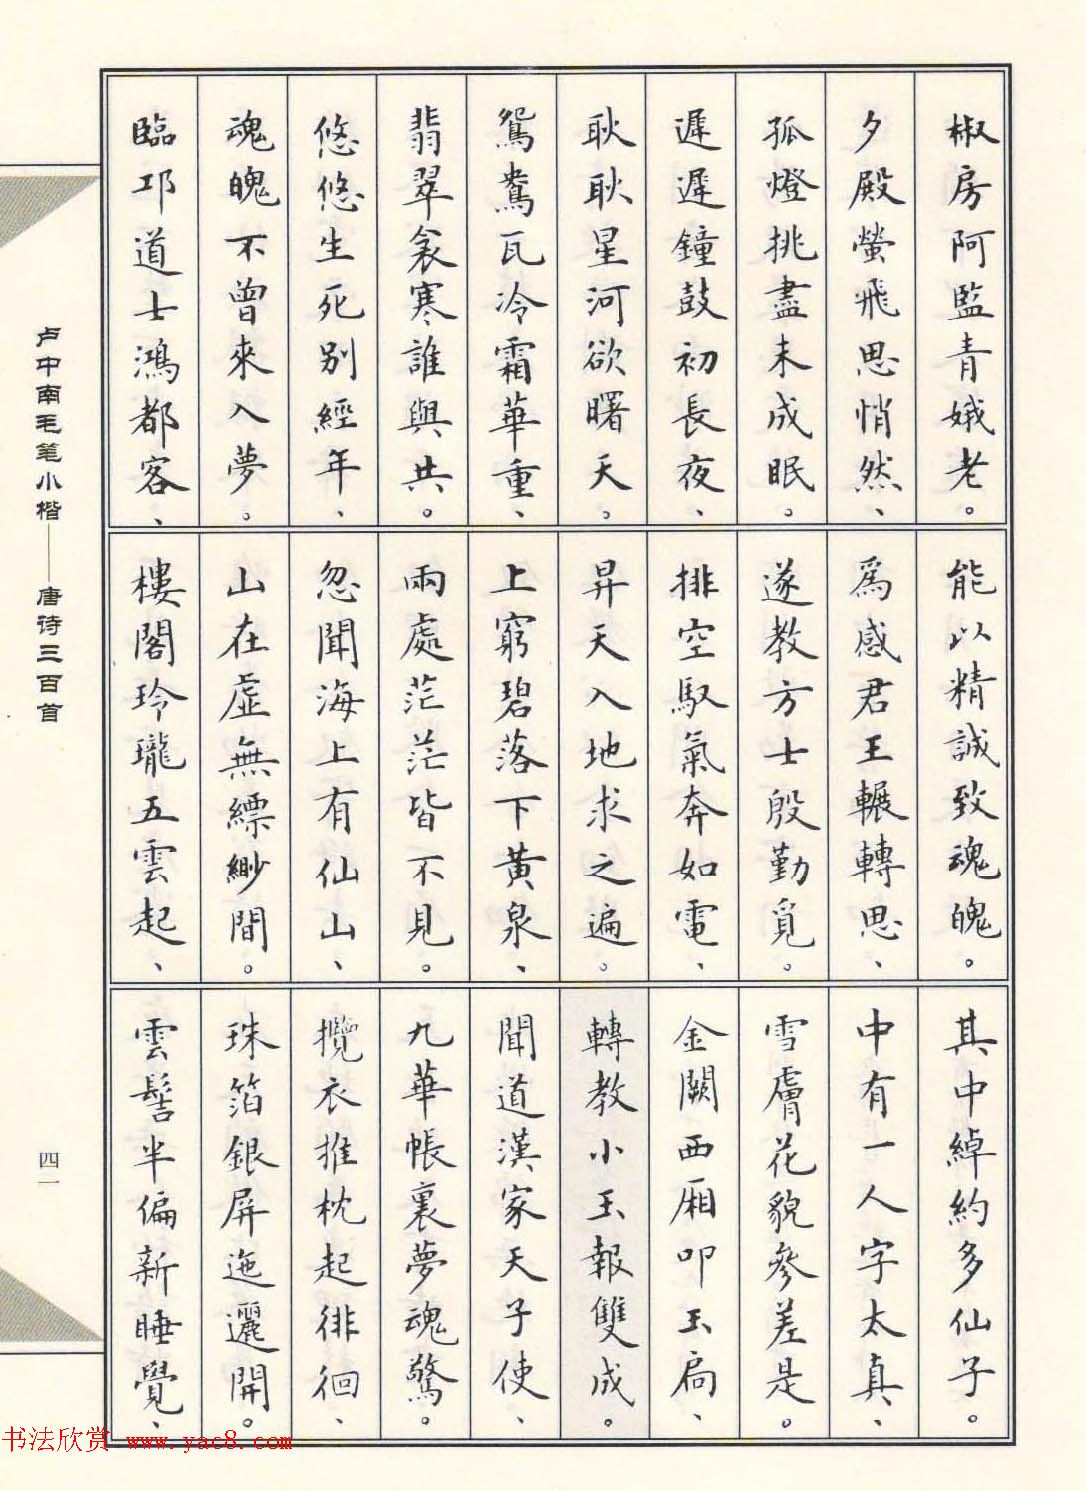 椒房阿監青娥老。
夕殿螢飛思悄然、
孤燈挑盡未成眠。
遲遲鐘鼓初長夜、
耿耿星河欲曙天。
鴛鴦瓦冷霜華重、
翡翠衾寒誰與共。
悠悠生死別經年、
魂魄不曾來入夢。
臨邛道士鴻都客、
能以精誠致魂魄。
爲感君王輾轉思、
遂教方士殷勤覓。
排空馭氣奔如電、
昇天入地求之遍。
上窮碧落下黃泉、
兩處茫茫皆不見。
忽聞海上有仙山、
山在虛無縹緲間。
樓閣玲瓏五雲起、
其中綽約多仙子。
中有一人字太真、
雪膚花貌參差是。
金闕西廂叩玉扃、
轉教小玉報雙成。
聞道漢家天子使、
九華帳裏夢魂驚。
攬衣推枕起徘徊、
珠箔銀屏迤邐開。
雲髻半偏新睡覺、
卢中南毛笔小楷——唐诗三百首
四一
书法欣赏 www.yac8.com